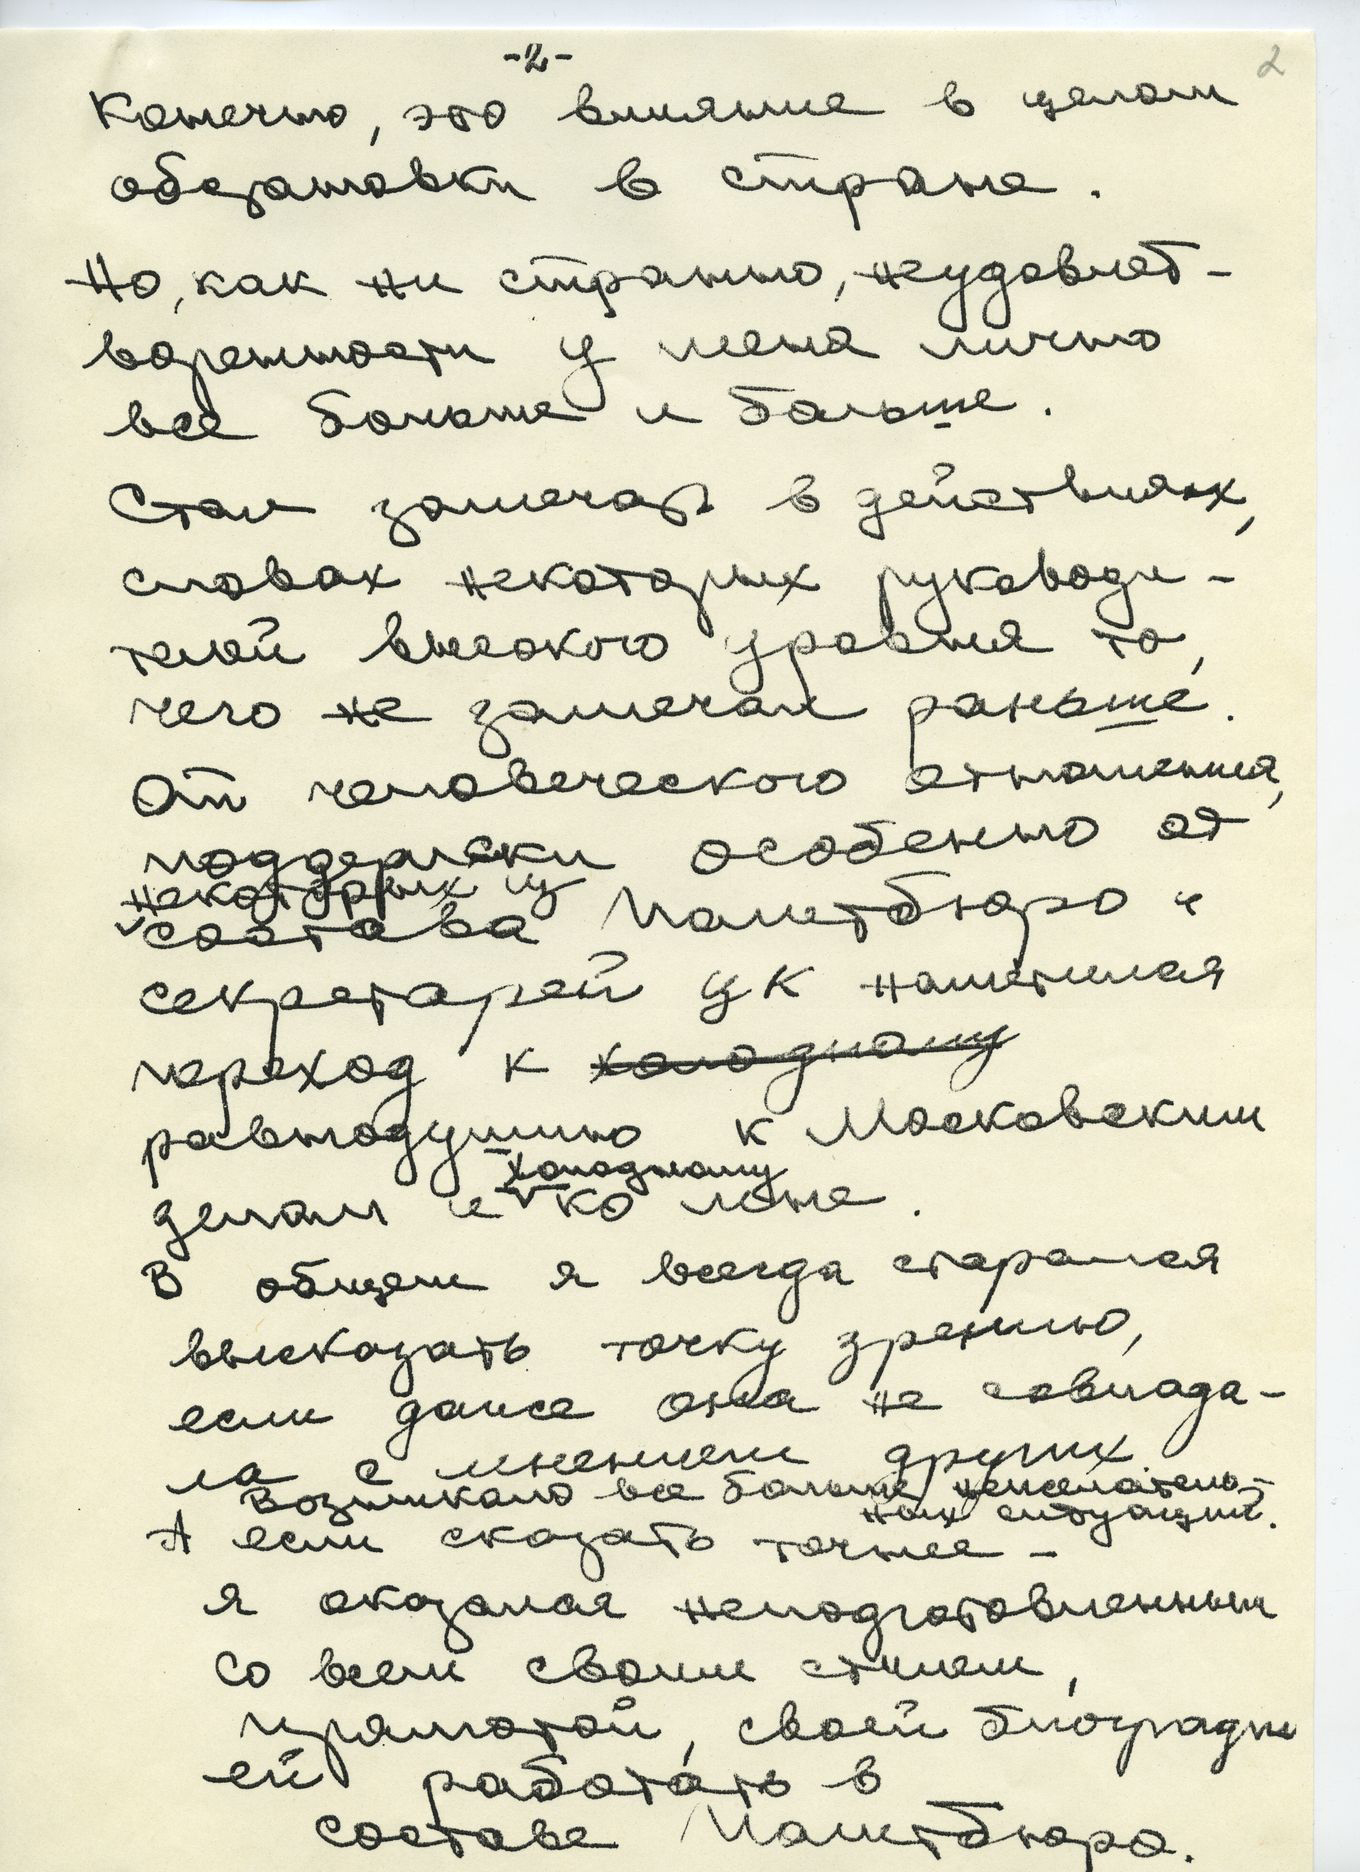 -2-
2
Конечно, это влияние в целом
обстановки в стране.
Но, как ни странно, неудовлет-
воренности у меня лично
все больше и больше.
Стал замечать в действиях,
словах некоторых руководи-
телей высокого уровня то,
чего не замечал раньше.
От человеческого отношения,
поддержки особенно от
некоторых из
состава Политбюро и
секретарей ЦК наметился
переход к холодному
равнодушию к Московским
холодному
делам и ко мне.
В общем я всегда старался
высказать точку зрению,
если даже она не совпада-
ла с мнением других.
Возникало все больше нежелатель-
ных ситуаций.
А если сказать точнее -
я оказался неподготовленным
со всем своим стилем,
прямотой, своей биографи
ей работать в
составе Политбюро.